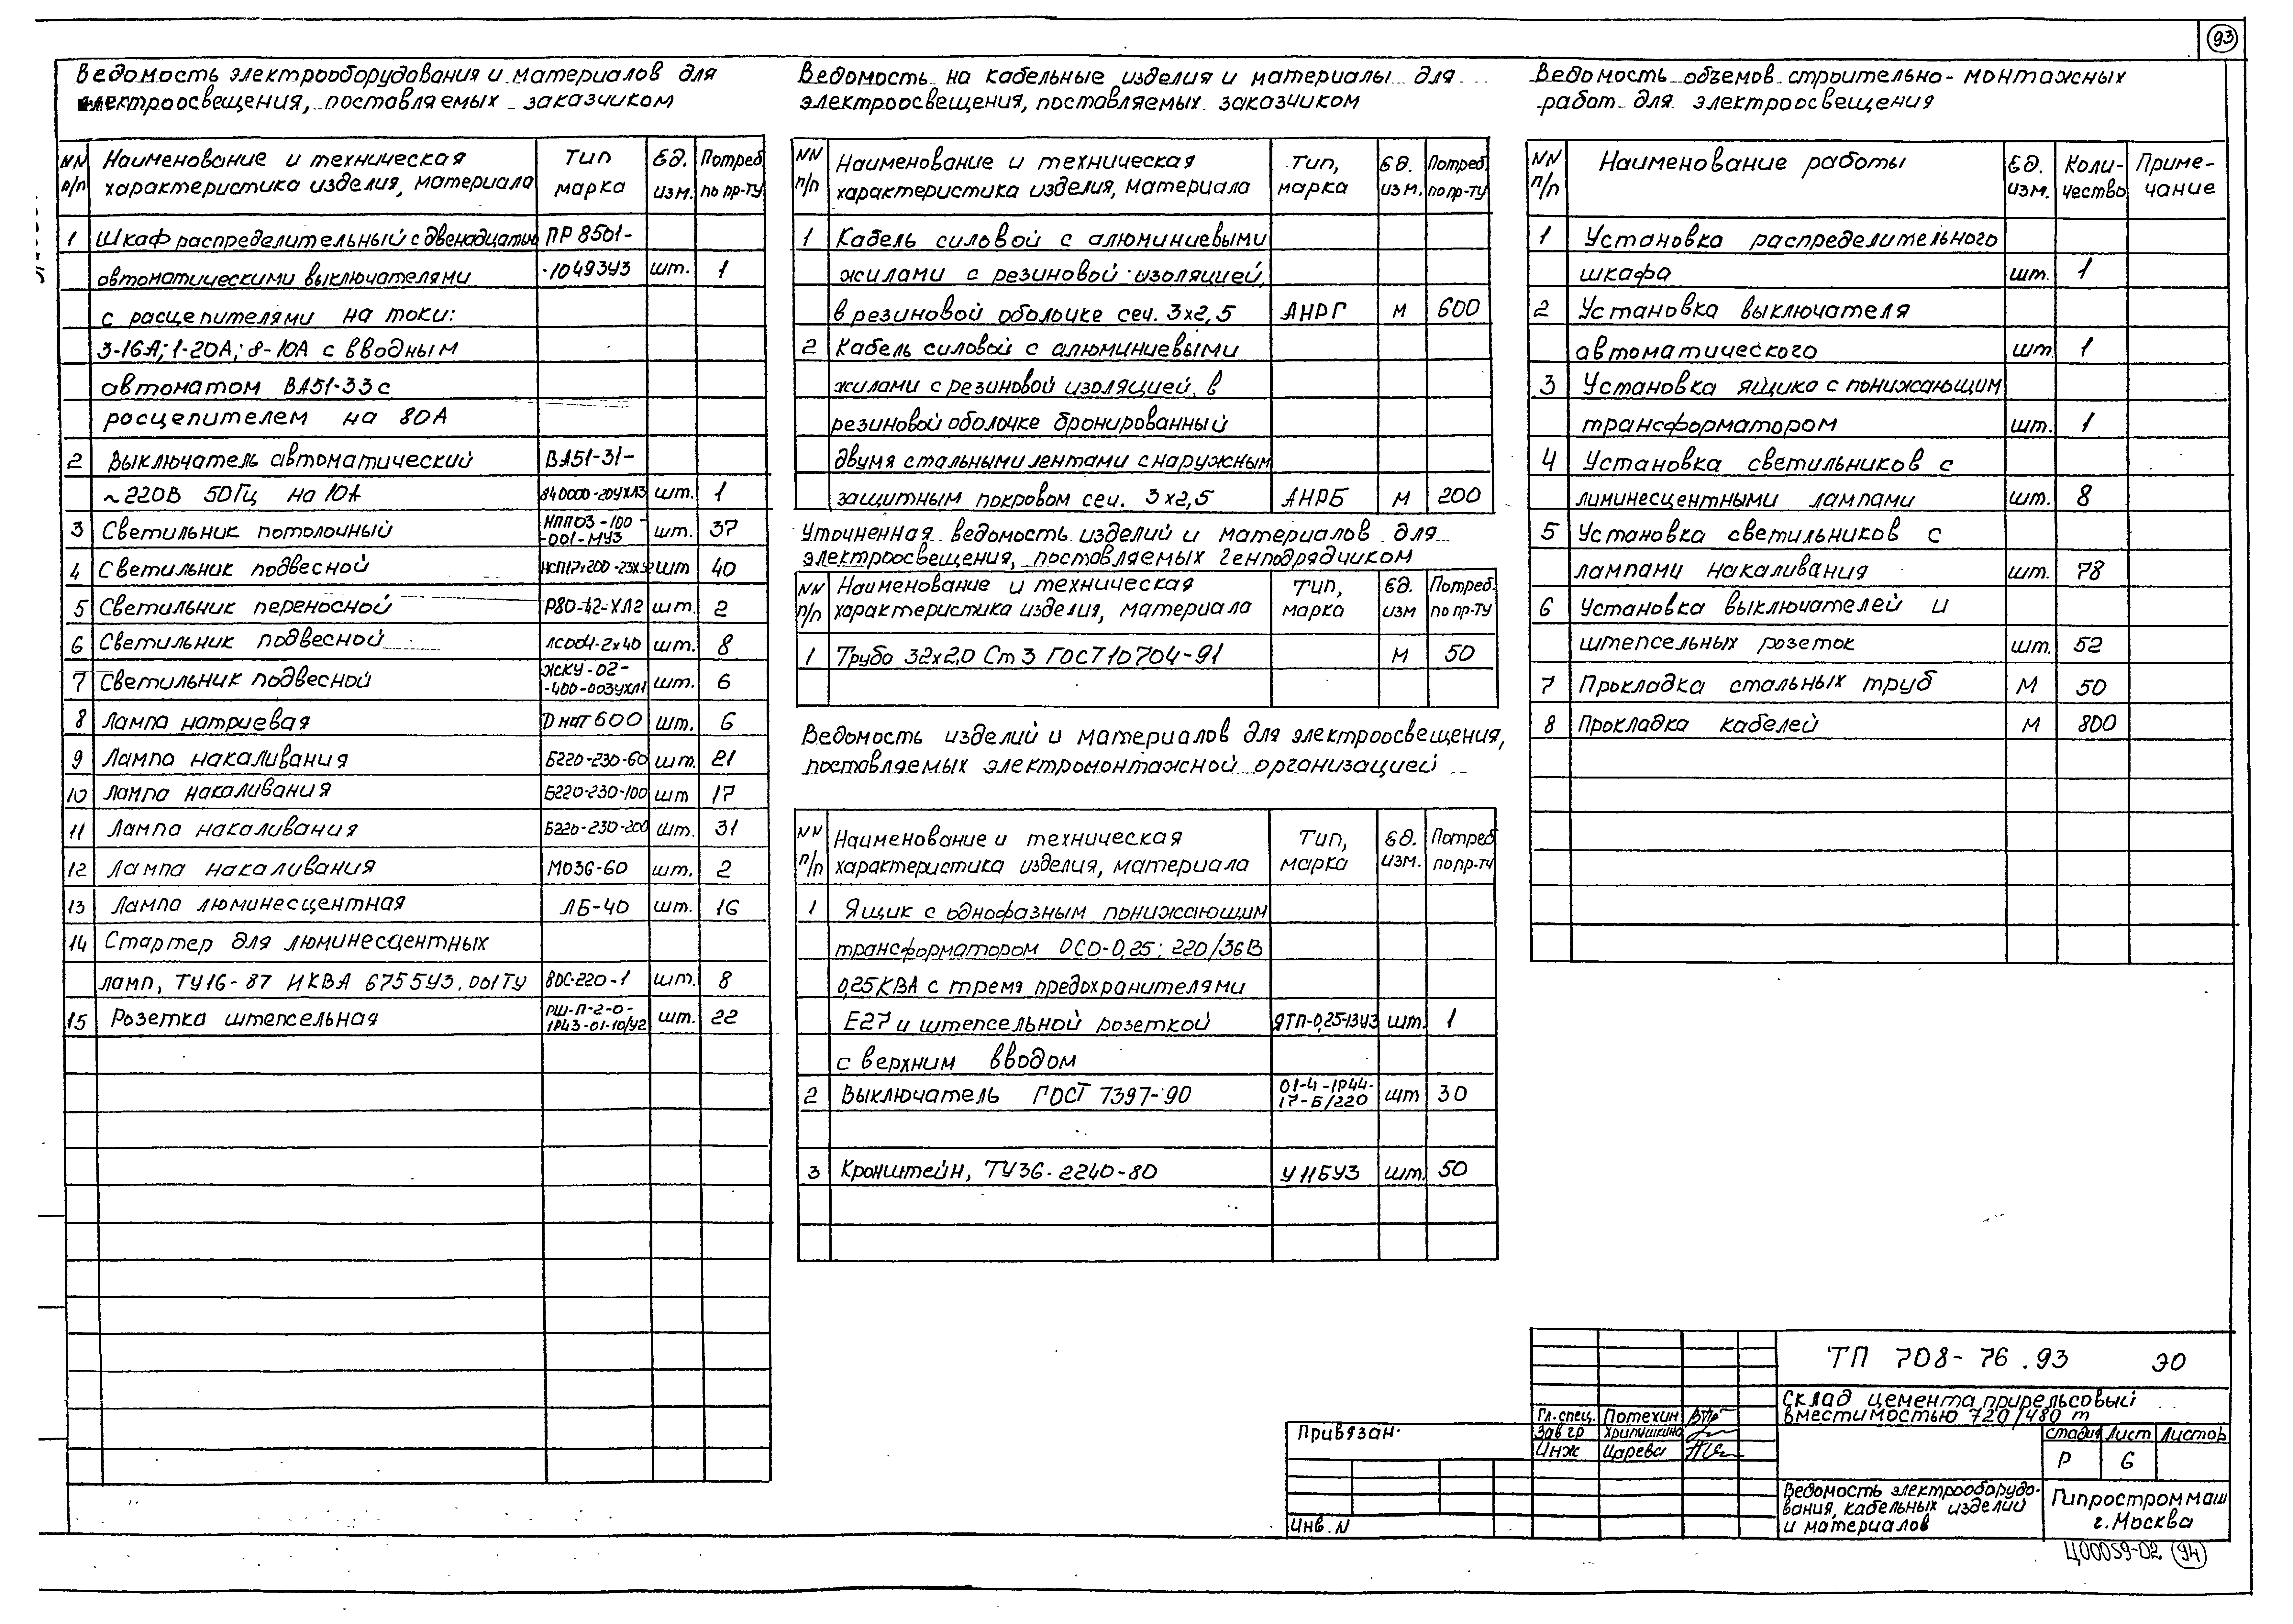 93
Ведомость электрооборудования и материалов для
электроосвещения, поставляемых заказчиком
NN п/п | Наименование и техническая характеристика изделия, материала | Тип марка | Ед. изм. | Потреб. по пр-ту
1 Шкаф распределительный с двенадцатью ПР 8501-
автоматическими выключателями -10493У3 шт. 1
с расцепителями на токи:
3-16А; 1-20А; 8-10А с вводным
автоматом ВА51-33 с
расцепителем на 80А
2 Выключатель автоматический ВА51-31-
~220В 50Гц на 10А 840000-20УХЛ3 шт. 1
3 Светильник потолочный НПП03-100-
-001-МУ3 шт. 37
4 Светильник подвесной шт 40
5 Светильник переносной Р80-42-ХЛ2 шт. 2
6 Светильник подвесной ЛСО04-2х40 шт. 8
7 Светильник подвесной ЖСКУ-02-
-400-003УХЛ1 шт. 6
8 Лампа натриевая ДНаТ 600 шт. 6
9 Лампа накаливания Б220-230-60 шт. 21
10 Лампа накаливания Б220-230-100 шт 17
11 Лампа накаливания Б220-230-200 шт. 31
12 Лампа накаливания МО36-60 шт. 2
13 Лампа люминесцентная ЛБ-40 шт. 16
14 Стартер для люминесцентных
ламп, ТУ16-87 ИКВА 675543.001ТУ 80С-220-1 шт. 8
15 Розетка штепсельная РШ-П-2-0-
1Р43-01-10/42 шт. 22
Ведомость на кабельные изделия и материалы для
электроосвещения, поставляемых заказчиком
NN п/п | Наименование и техническая характеристика изделия, материала | Тип, марка | Ед. изм. | Потреб. по пр-ту
1 Кабель силовой с алюминиевыми
жилами с резиновой изоляцией,
в резиновой оболочке сеч. 3х2,5 АНРГ м 600
2 Кабель силовой с алюминиевыми
жилами с резиновой изоляцией, в
резиновой оболочке бронированный
двумя стальными лентами с наружным
защитным покровом сеч. 3х2,5 АНРБ м 200
Уточненная ведомость изделий и материалов для
электроосвещения, поставляемых генподрядчиком
NN п/п | Наименование и техническая характеристика изделия, материала | Тип, марка | Ед. изм | Потреб. по пр-ту
1 Труба 32х2,0 Ст3 ГОСТ10704-91 м 50
Ведомость изделий и материалов для электроосвещения,
поставляемых электромонтажной организацией
NN п/п | Наименование и техническая характеристика изделия, материала | Тип, марка | Ед. изм. | Потреб по пр-ту
1 Ящик с однофазным понижающим
трансформатором ОСО-0,25; 220/36В
0,25КВА с тремя предохранителями
Е27 и штепсельной розеткой ЯТП-0,25-13У3 шт. 1
с верхним вводом
2 Выключатель ГОСТ 7397-90 01-4-1Р44-
17-Б/220 шт 30
3 Кронштейн, ТУ36-2240-80 У11БУ3 шт. 50
Ведомость объемов строительно-монтажных
работ для электроосвещения
NN п/п | Наименование работы | Ед. изм. | Коли-чество | Приме-чание
1 Установка распределительного
шкафа шт. 1
2 Установка выключателя
автоматического шт. 1
3 Установка ящика с понижающим
трансформатором шт. 1
4 Установка светильников с
лининесцентными лампами шт. 8
5 Установка светильников с
лампами накаливания шт. 78
6 Установка выключателей и
штепсельных розеток шт. 52
7 Прокладка стальных труб м 50
8 Прокладка кабелей м 800
Привязан
Инв. N
Гл. спец. Потехин
Зав гр Хрипушкина
Инж Царева
ТП 708-76.93 ЭО
Склад цемента прирельсовый
вместимостью 720/480 т
Стадия Лист Листов
Р 6
Ведомость электрооборудо-
вания, кабельных изделий
и материалов
Гипростроммаш
г. Москва
Ц00059-02 94